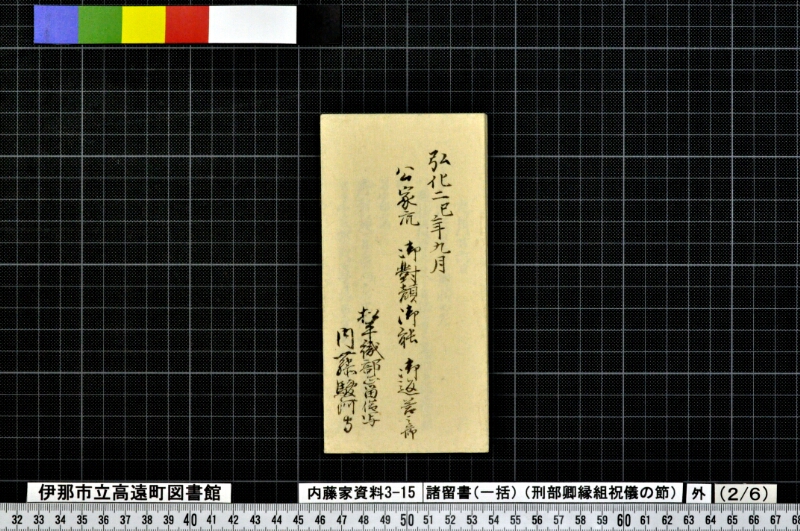 弘化二巳年九月
公家衆 御對顔御能 御返答之節
松平織部正留役ゟ
内藤駿河守
伊那市立高遠町図書館
内藤家資料3-15
諸留書(一括)(刑部卿縁組祝儀の節)
外
(2/6)
32 33 34 35 36 37 38 39 40 41 42 43 44 45 46 47 48 49 50 51 52 53 54 55 56 57 58 59 60 61 62 63 64 65 66 67 68